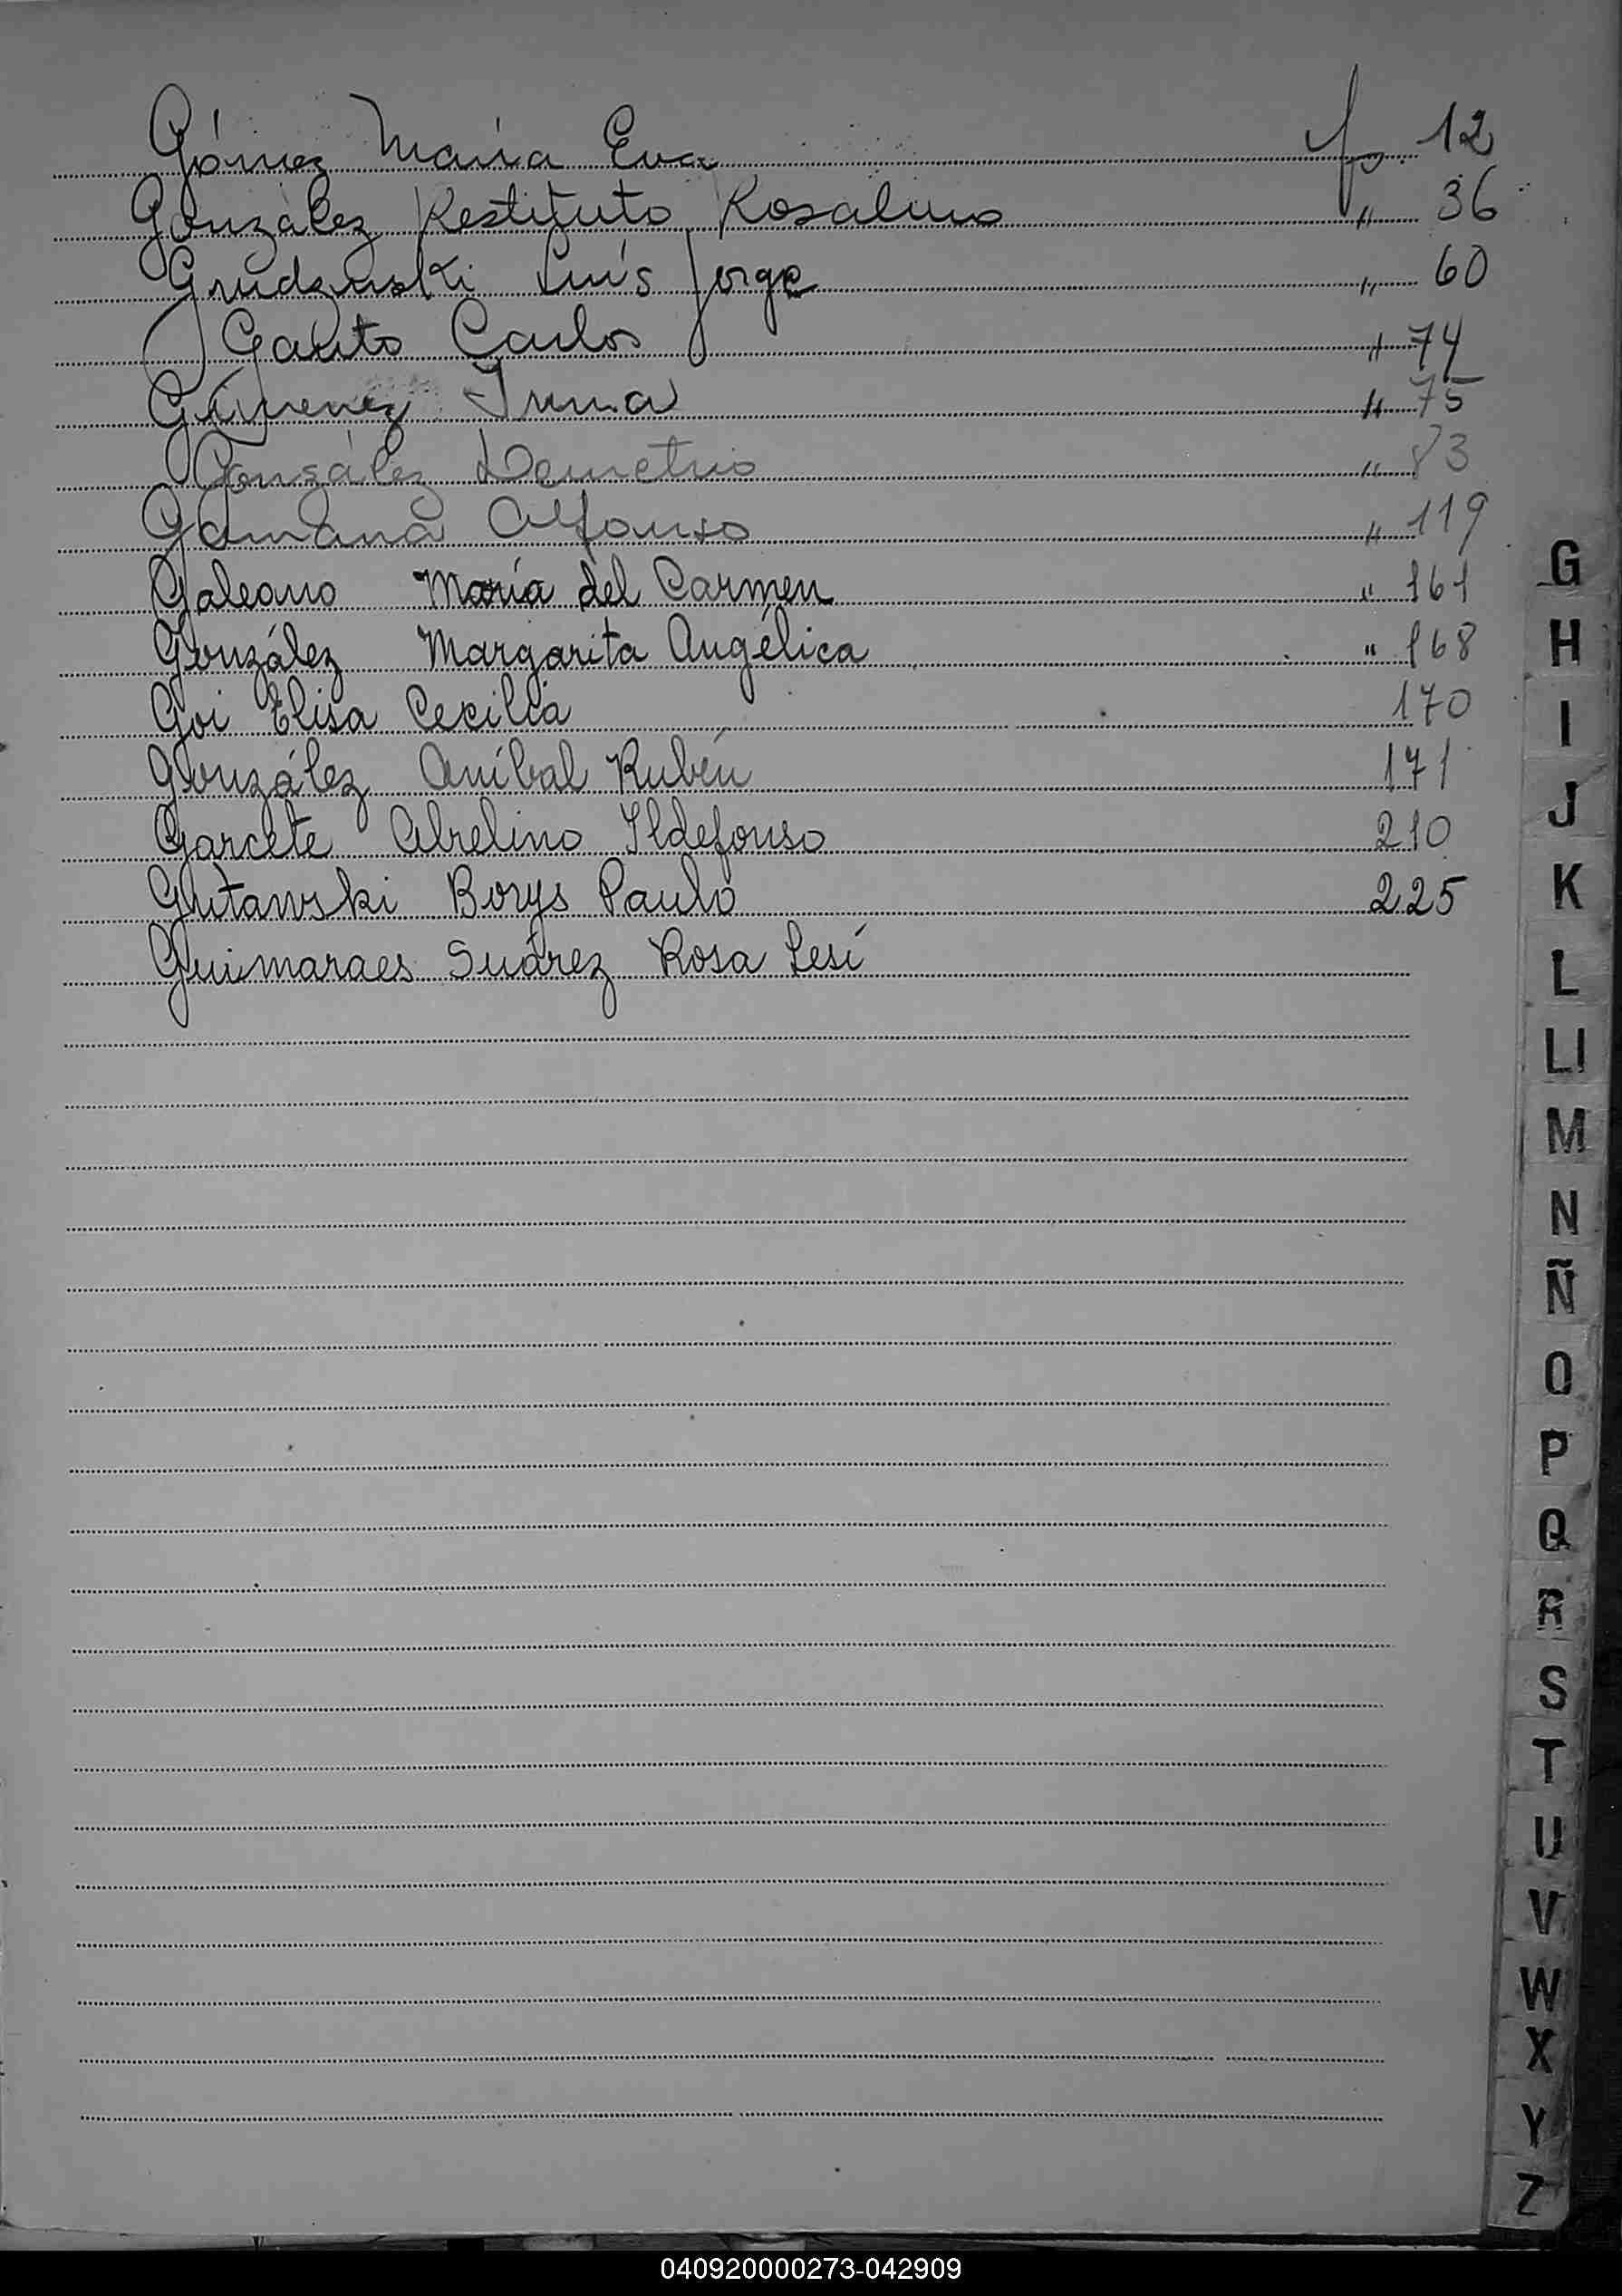 Gómez María Eva fo. 12
González Restituto Rosalino " 36
Grudzinski Luís Jorge " 60
Gauto Carlos " 74
Gimenez Irma " 75
González Demetrio " 83
Gamana Alfonso " 119
Galeano María del Carmen " 161
González Margarita Angélica " 168
Goi Elisa Cecilia 170
González Aníbal Rubén 171
Garcete Abelino Ildefonso 210
Borys Paulo 225
Guimaraes Suárez Rosa Lesí
G
H
I
J
K
L
Ll
M
N
Ñ
O
P
Q
R
S
T
U
V
W
X
Y
Z
040920000273-042909